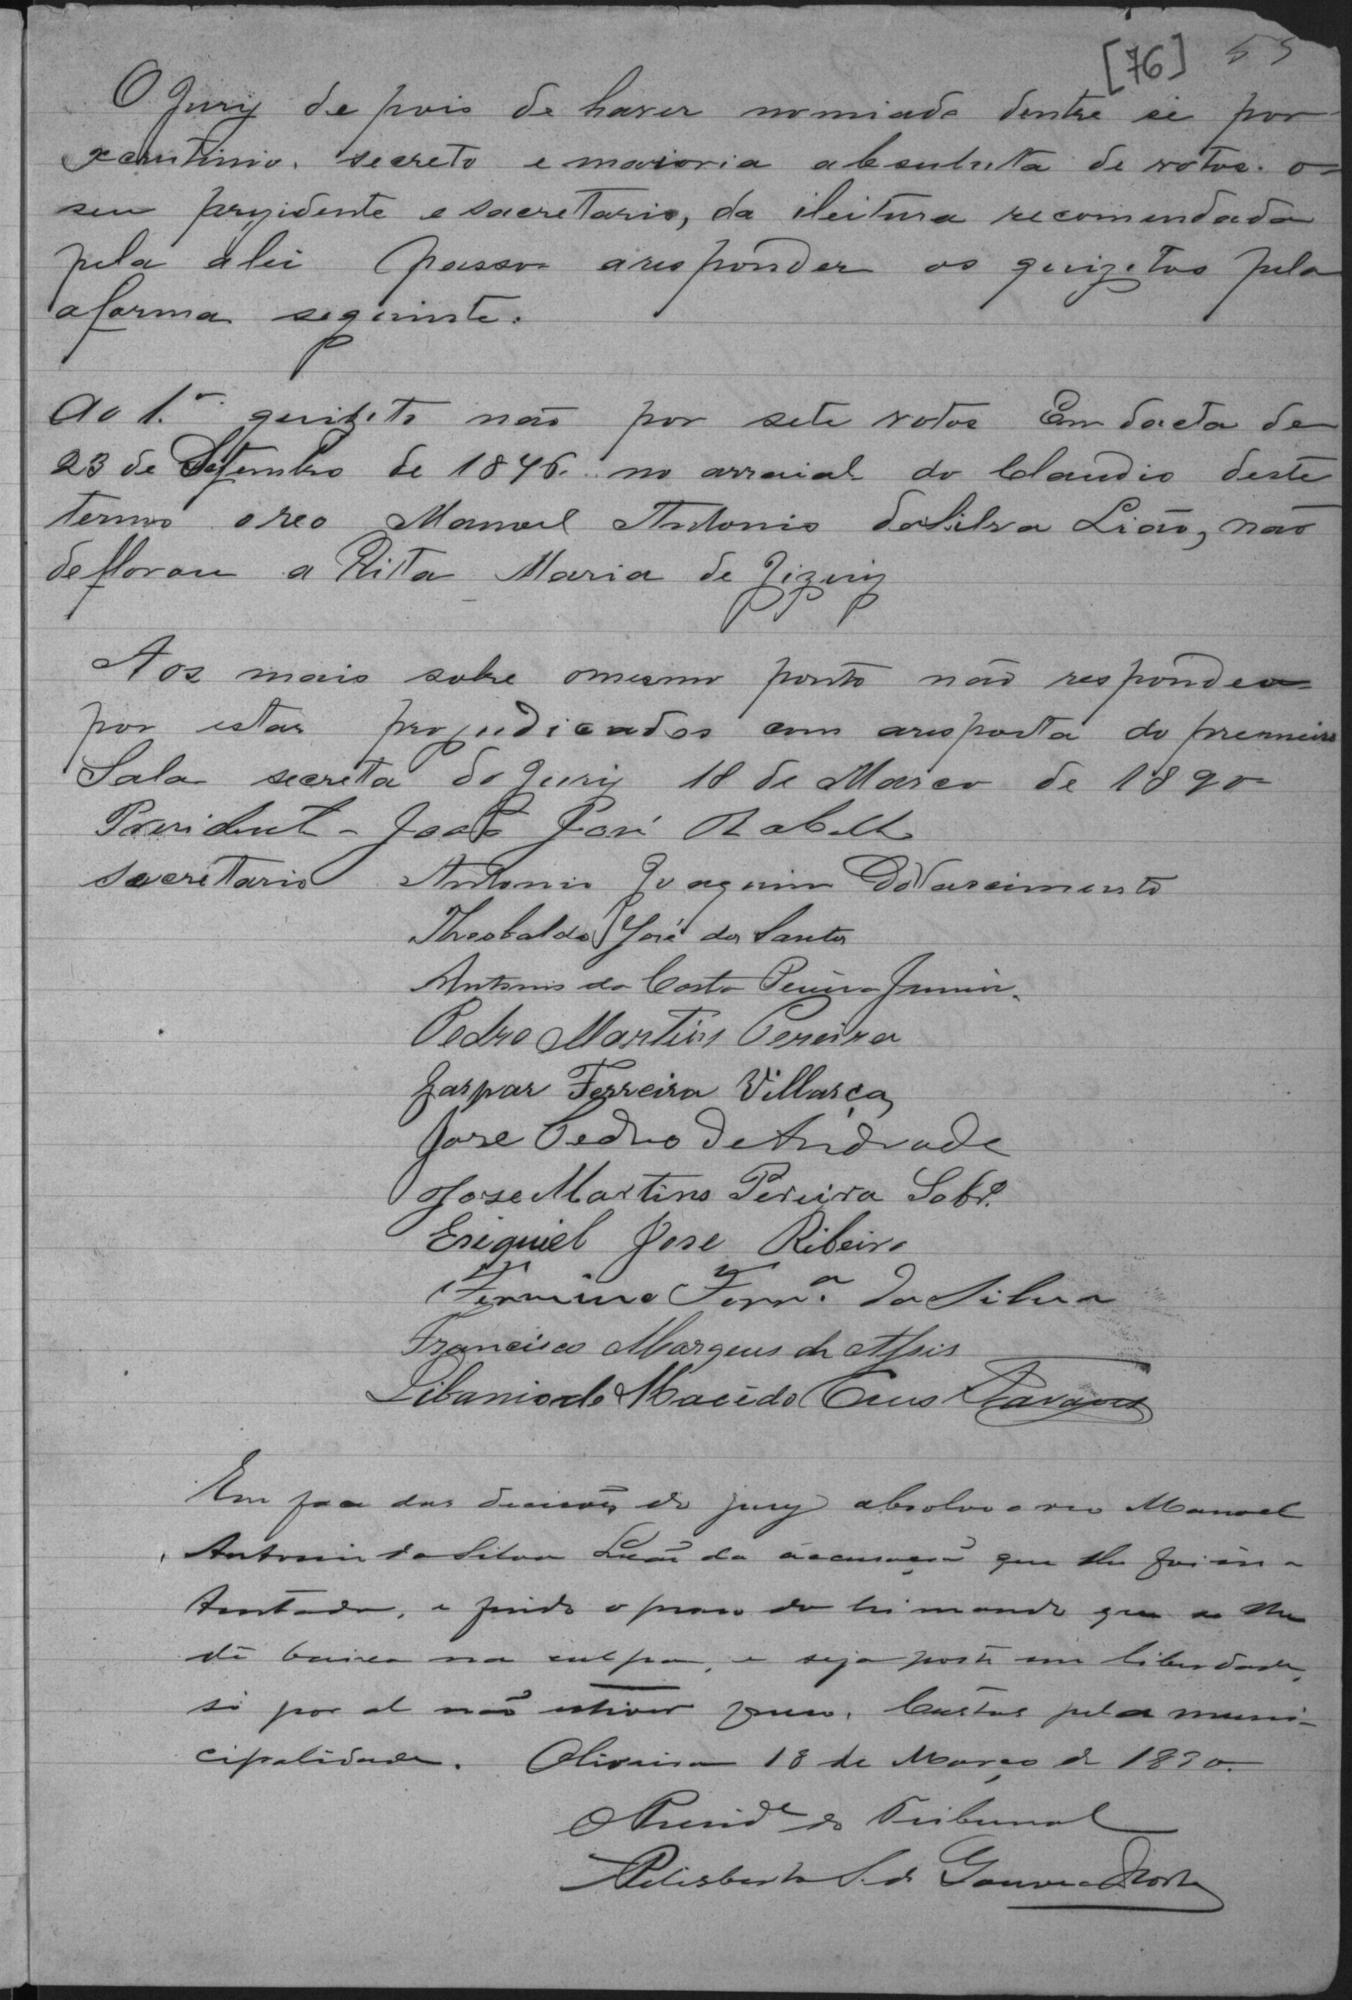 [76] 55
O Jury de pois de haver nomiado dentre si por
xcrutinio. secreto e maioria absuluta de votos. o
seu prezidente e sacretario, da ileitura recomendada
pela alei passou aresponder os quizitos pela
aforma seguinte.
Ao 1.º quizito não por sete votos Em dacta de
23 de Setembro de 1876. no arraial do Claudio deste
termo oreo Manoel Antonio da Silva Lião, não
deflorou a Rita Maria de Jizuiz
Aos mais sobre omesmo ponto não respondeo
por estar prejudicados com aresposta do premeiro
Sala secreta do Jury 18 de Marco de 1890
President - João José Rabello
sacretario Antonio Joaquim Do Nascimento
Theobaldo José dos Santos
Antonio da Costa Pereira Junior.
Pedro Martins Pereira
Gaspar Ferreira Villarça
Jose Pedro de Andrade
Jose Martins Pereira Sobr.º
Eziquiel Jose Ribeiro
Firmino Ferr.ª da Silva
Francisco Marques de Assis
Libanio de Macêdo Cruz Tavares
Em face das decisões do jury absolvo o reo Manoel
Antonio da Silva Leão da accusação que lhe foi in-
tentada, e findo o praso da lei mando que se lhe
dê baixa na culpa, e seja posto em liberdade,
si por al não estiver preso. Custas pela muni-
cipalidade. Oliveira 18 de Março de 1890.
O Presid.e do Tribunal
S. de Gouvea Horta